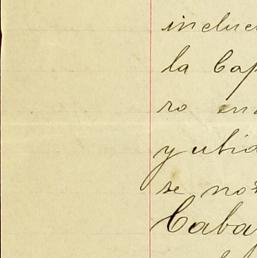 inclu
la Cap
ro en
y ubi
se no
Caba